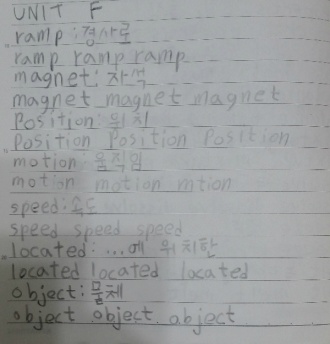 UNIT F
ramp:경사로
ramp ramp ramp
magnet:자석
magnet magnet magnet
Position:위치
Position Position Position
motion:움직임
motion motion mtion
speed:속도
speed speed speed
located:...에 위치한
located located located
object:물체
object object object